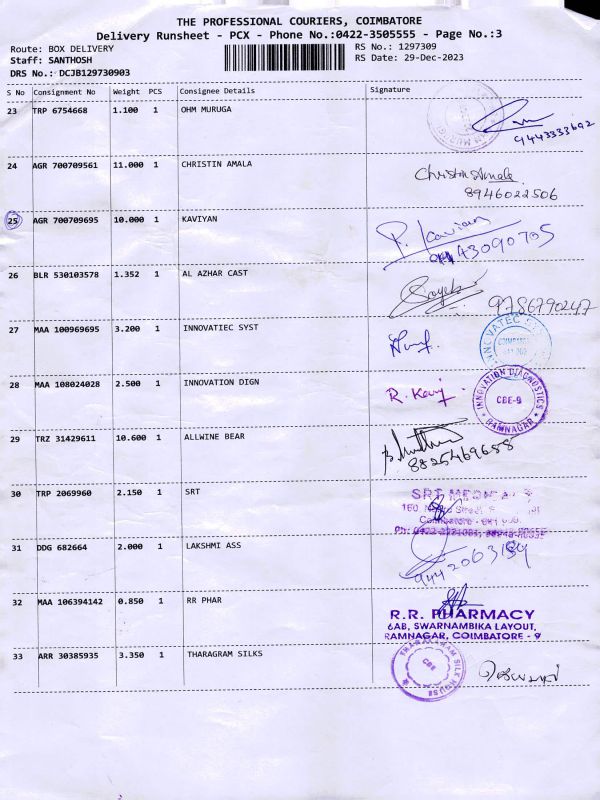 THE PROFESSIONAL COURIERS, COIMBATORE
Delivery Runsheet - PCX - Phone No.:0422-3505555 - Page No.:3
Route: BOX DELIVERY
RS No.: 1297309
Staff: SANTHOSH
RS Date: 29-Dec-2023
DRS No.: DCJB129730903
S No Consignment No Weight PCS Consignee Details Signature
23 TRP 6754668 1.100 1 OHM MURUGA
9443333692
24 AGR 700709561 11.000 1 CHRISTIN AMALA Christin Amala
8946022506
25 AGR 700709695 10.000 1 KAVIYAN P. Kavian
9443090705
26 BLR 530103578 1.352 1 AL AZHAR CAST
9786790247
27 MAA 100969695 3.200 1 INNOVATIEC SYST
28 MAA 108024028 2.500 1 INNOVATION DIGN R. Kavi
INNOVATION DIAGNOSTICS
CBE-9
RAMNAGAR
29 TRZ 31429611 10.600 1 ALLWINE BEAR
8825469658
30 TRP 2069960 2.150 1 SRT
31 DDG 682664 2.000 1 LAKSHMI ASS
32 MAA 106394142 0.850 1 RR PHAR
R.R. PHARMACY
6AB, SWARNAMBIKA LAYOUT,
RAMNAGAR, COIMBATORE - 9
33 ARR 30385935 3.350 1 THARAGRAM SILKS
THARAGRAM SILK HOUSE
CBE